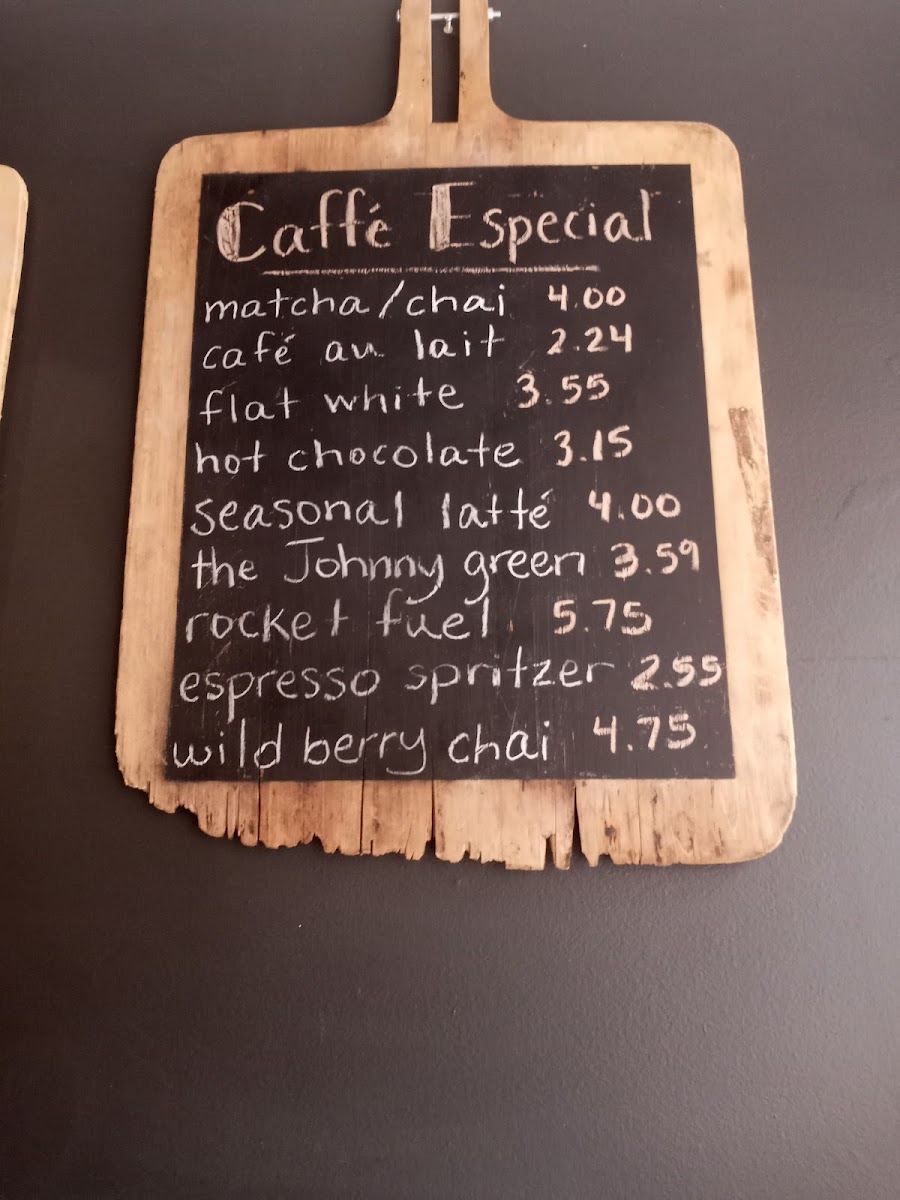 Caffé Especial
matcha/chai 4.00
café au lait 2.24
flat white 3.55
hot chocolate 3.15
seasonal latté 4.00
the Johnny green 3.59
rocket fuel 5.75
espresso spritzer 2.55
wild berry chai 4.75